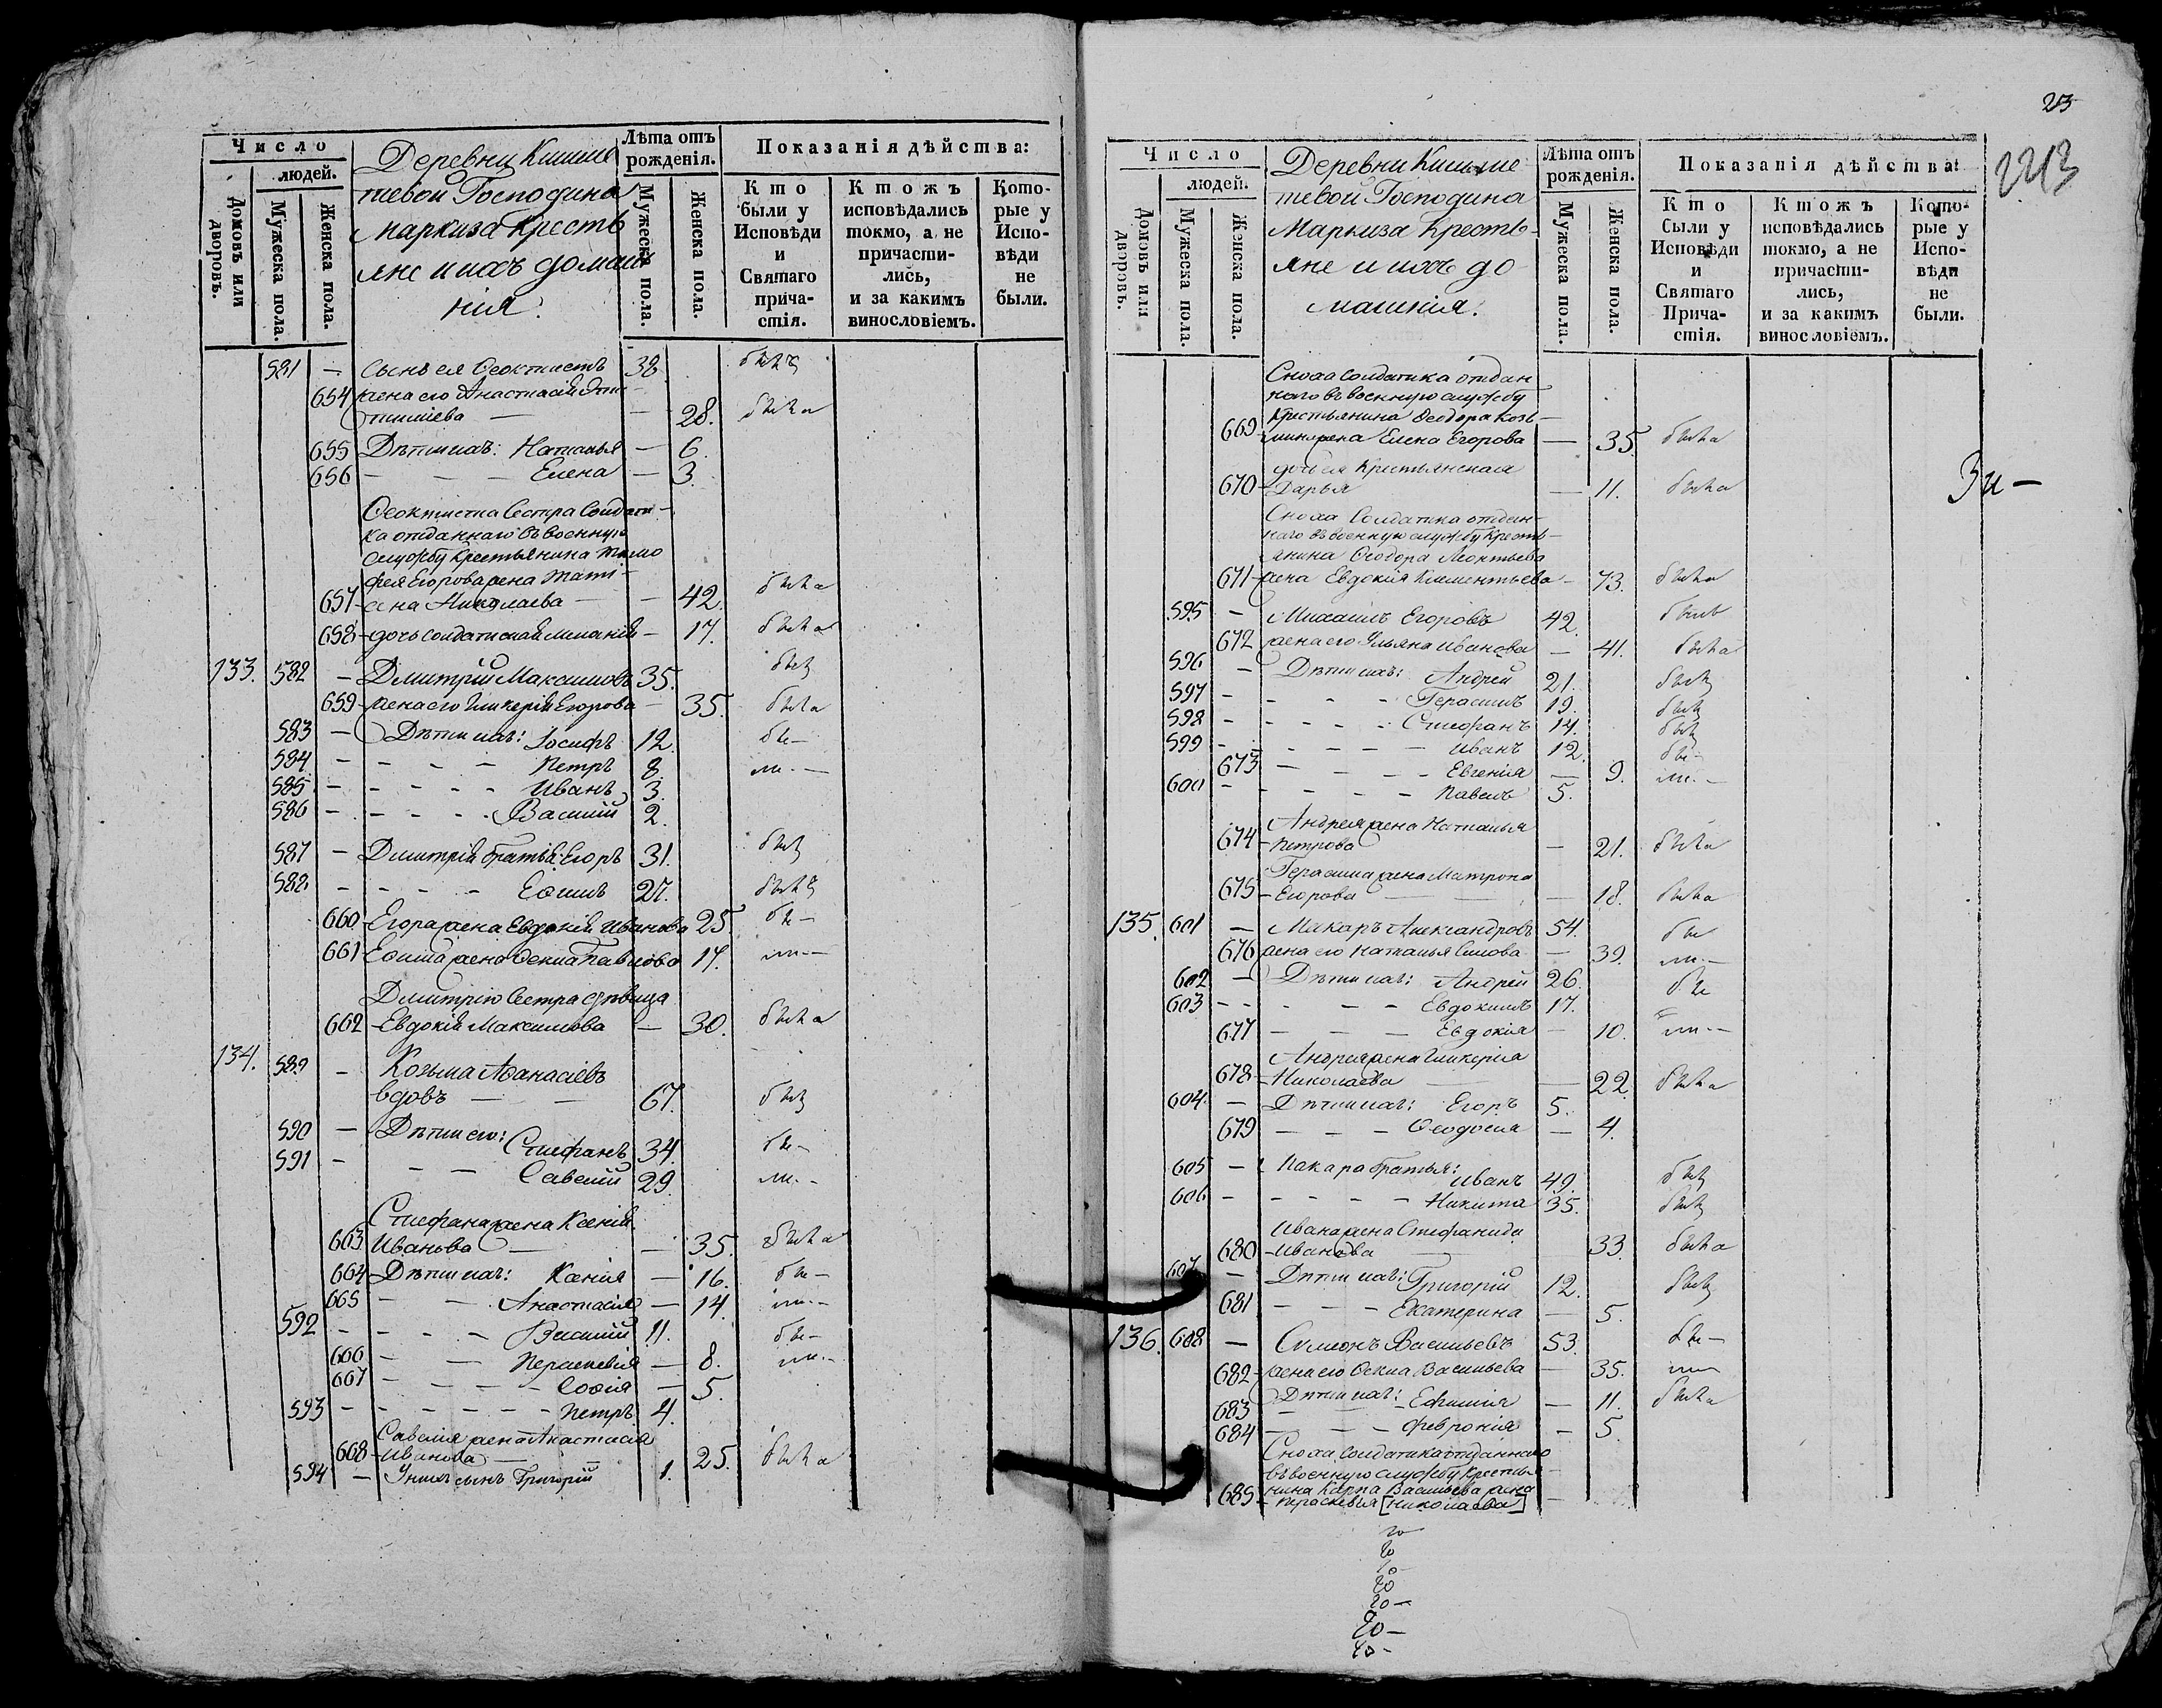 Число
людей.
Домовъ или дворовъ.
Мужеска пола.
Женска пола.
Деревни Кишме
тевой Господина
маркиза Кресть
яне и ихъ домаш
нія:
Лѣта отъ рожденія.
Мужеска пола.
Женска пола.
Показанія дѣйства:
Кто были у Исповѣди и Святаго причастія.
Ктожъ исповѣдались токмо, а не причастились, и за какимъ винословіемъ.
Которые у Исповѣди не были.
581 — Сынъ ея Ѳеоктистъ 38. былъ
654 жена его Анастасія
— — 28. была
655 Дѣти ихъ: Наталья — 6.
656 — — — Елена — 3.
Ѳеоктиста Сестра Солдат-
ка отданнаго въ военную
службу Крестьянина Тимо
фея Егорова жена Тати-
657 ана Николаева — — 42. была
658 дочь солдатская Меланія — 17. была
133. 582 — Дмитрій Максимовъ 35. былъ
659 жена его Гликерія Егорова — 35. была
583 — Дѣти ихъ: Іосифъ 12. бы—
584 — — — — Петръ 8. ли.—
585 — — — — Иванъ 3.
586 — — — — Василій 2.
587 — Дмитрія братья: Егоръ 31. былъ
588 — — — — Еѳимъ 27. былъ
660 Егора жена Евдокія Иванова 25. бы—
661 Еѳима жена Ѳекла Павлова 17. ли.—
Дмитрію Сестра дѣвица
662 Евдокія Максимова — 30. была
134. 589 — Козьма Аѳанасіевъ
вдовъ — — 67. былъ
590 — Дѣти его: Стефанъ 34. бы—
591 — — — Савелій 29. ли.—
Стефана жена Ксенія
663 Иванова — — 35. была
664 Дѣти ихъ: Ксенія — 16. бы—
665 — — Анастасія — 14. ли.—
592 — — — — Василій 11. бы—
666 — — Параскевія — 8. ли.—
667 — — — — Софія — 5.
593 — — — — — Петръ 4.
Савелія жена Анастасія
668 Иванова — 25. была
594 — У нихъ сынъ Григорій 1.
23
Число
людей.
Домовъ или дворовъ.
Мужеска пола.
Женска пола.
Деревни Кишме
тевой Господина
Маркиза Кресть-
яне и ихъ до
машнія:
Лѣта отъ рожденія.
Мужеска пола.
Женска пола.
Показанія дѣйства:
Кто были у Исповѣди и Святаго Причастія.
Ктожъ исповѣдались токмо, а не причастились, и за какимъ винословіемъ.
Которые у Исповѣди не были.
Сноха Солдатка отдан-
наго въ военную службу
Крестьянина Ѳеодора Козь-
669 мина жена Елена Егорова — 35. была
дочь ея Крестьянская
670 Дарья — 11. была
Сноха Солдатка отдан-
наго въ военную службу Кресть-
янина Ѳеодора Леонтьева
671 жена Евдокія Климентьева — 73. была
595 — Михаилъ Егоровъ 42. былъ
672 жена его Ульяна Иванова — 41. была
596 — Дѣти ихъ: Андрей 21. былъ
597 — — — — Герасимъ 19. былъ
598 — — — — Стефанъ 14. былъ
599 — — — — — Иванъ 12. бы—
673 — — — — Евгенія — 9. ли.—
600 — — — — — Павелъ 5.
Андрея жена Наталья
674 Петрова — 21. была
Герасима жена Матрона
675 Егорова — — 18. была
135. 601 — Макаръ Александровъ 54. бы
676 жена его Наталья Симова — 39. ли.—
602 — Дѣти ихъ: Андрей 26. бы
603 — — — — Евдокимъ 17.
677 — — — Евдокія — 10. ли.—
Андрея жена Гликерія
678 Николаева — — 22. была
604 — Дѣти ихъ: Егоръ 5.
679 — — — Ѳеодосія — 4.
605 — Макара братья: Иванъ 49. былъ
606 — — — — — Никита 35. былъ
Ивана жена Стефанида
680 Иванова — 33. была
607 — Дѣти ихъ: Григорій 12. былъ
681 — — — Екатерина — 5.
136. 608 — Симеонъ Васильевъ 53. бы—
682 жена его Ѳекла Васильева — 35. ли
683 Дѣти ихъ: Ефимія — 11. была
684 — — — Февронія — 5.
Сноха солдатка отданнаго
въ военную службу Крестья-
нина Карпа Васильева жена
685 Параскевія [Николаева] —
20
20
20
20
20 —
20 —
40 —